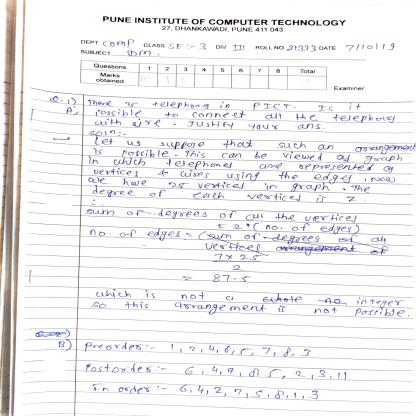 PUNE INSTITUTE OF COMPUTER TECHNOLOGY
27, DHANKAWADI, PUNE 411 043
DEPT Comp CLASS SE:-3 DIV III ROLL NO 21333 DATE 7/10/19
SUBJECT DM.
Questions 1 2 3 4 5 6 7 8 Total
Marks obtained
Examiner
Q-1) There 25 telephong in PICT. Is it
A) possible to connect all the telephong
with wire. Justify your ans.
soln:-
→ Let us suppose that such an arrangement
is possible. This can be viewed as graph
in which telephones are represented as
vertices & wires using the edges, now
we have 25 vertices in graph. The
degree of each vertices is 7.
∴
sum of degrees of all the vertices
= 2*(no. of edges)
no. of edges = (sum of degrees of all
vertices of
7 x 25
2
= 87.5
which is not a integer
so this arrangement is not possible.
B) Preorder:- 1, 2, 4, 6, 5, 7, 8, 3
Postorder:- 6, 4, 7, 8, 5, 2, 3, 11
In order:- 6, 4, 2, 7, 5, 8, 1, 3